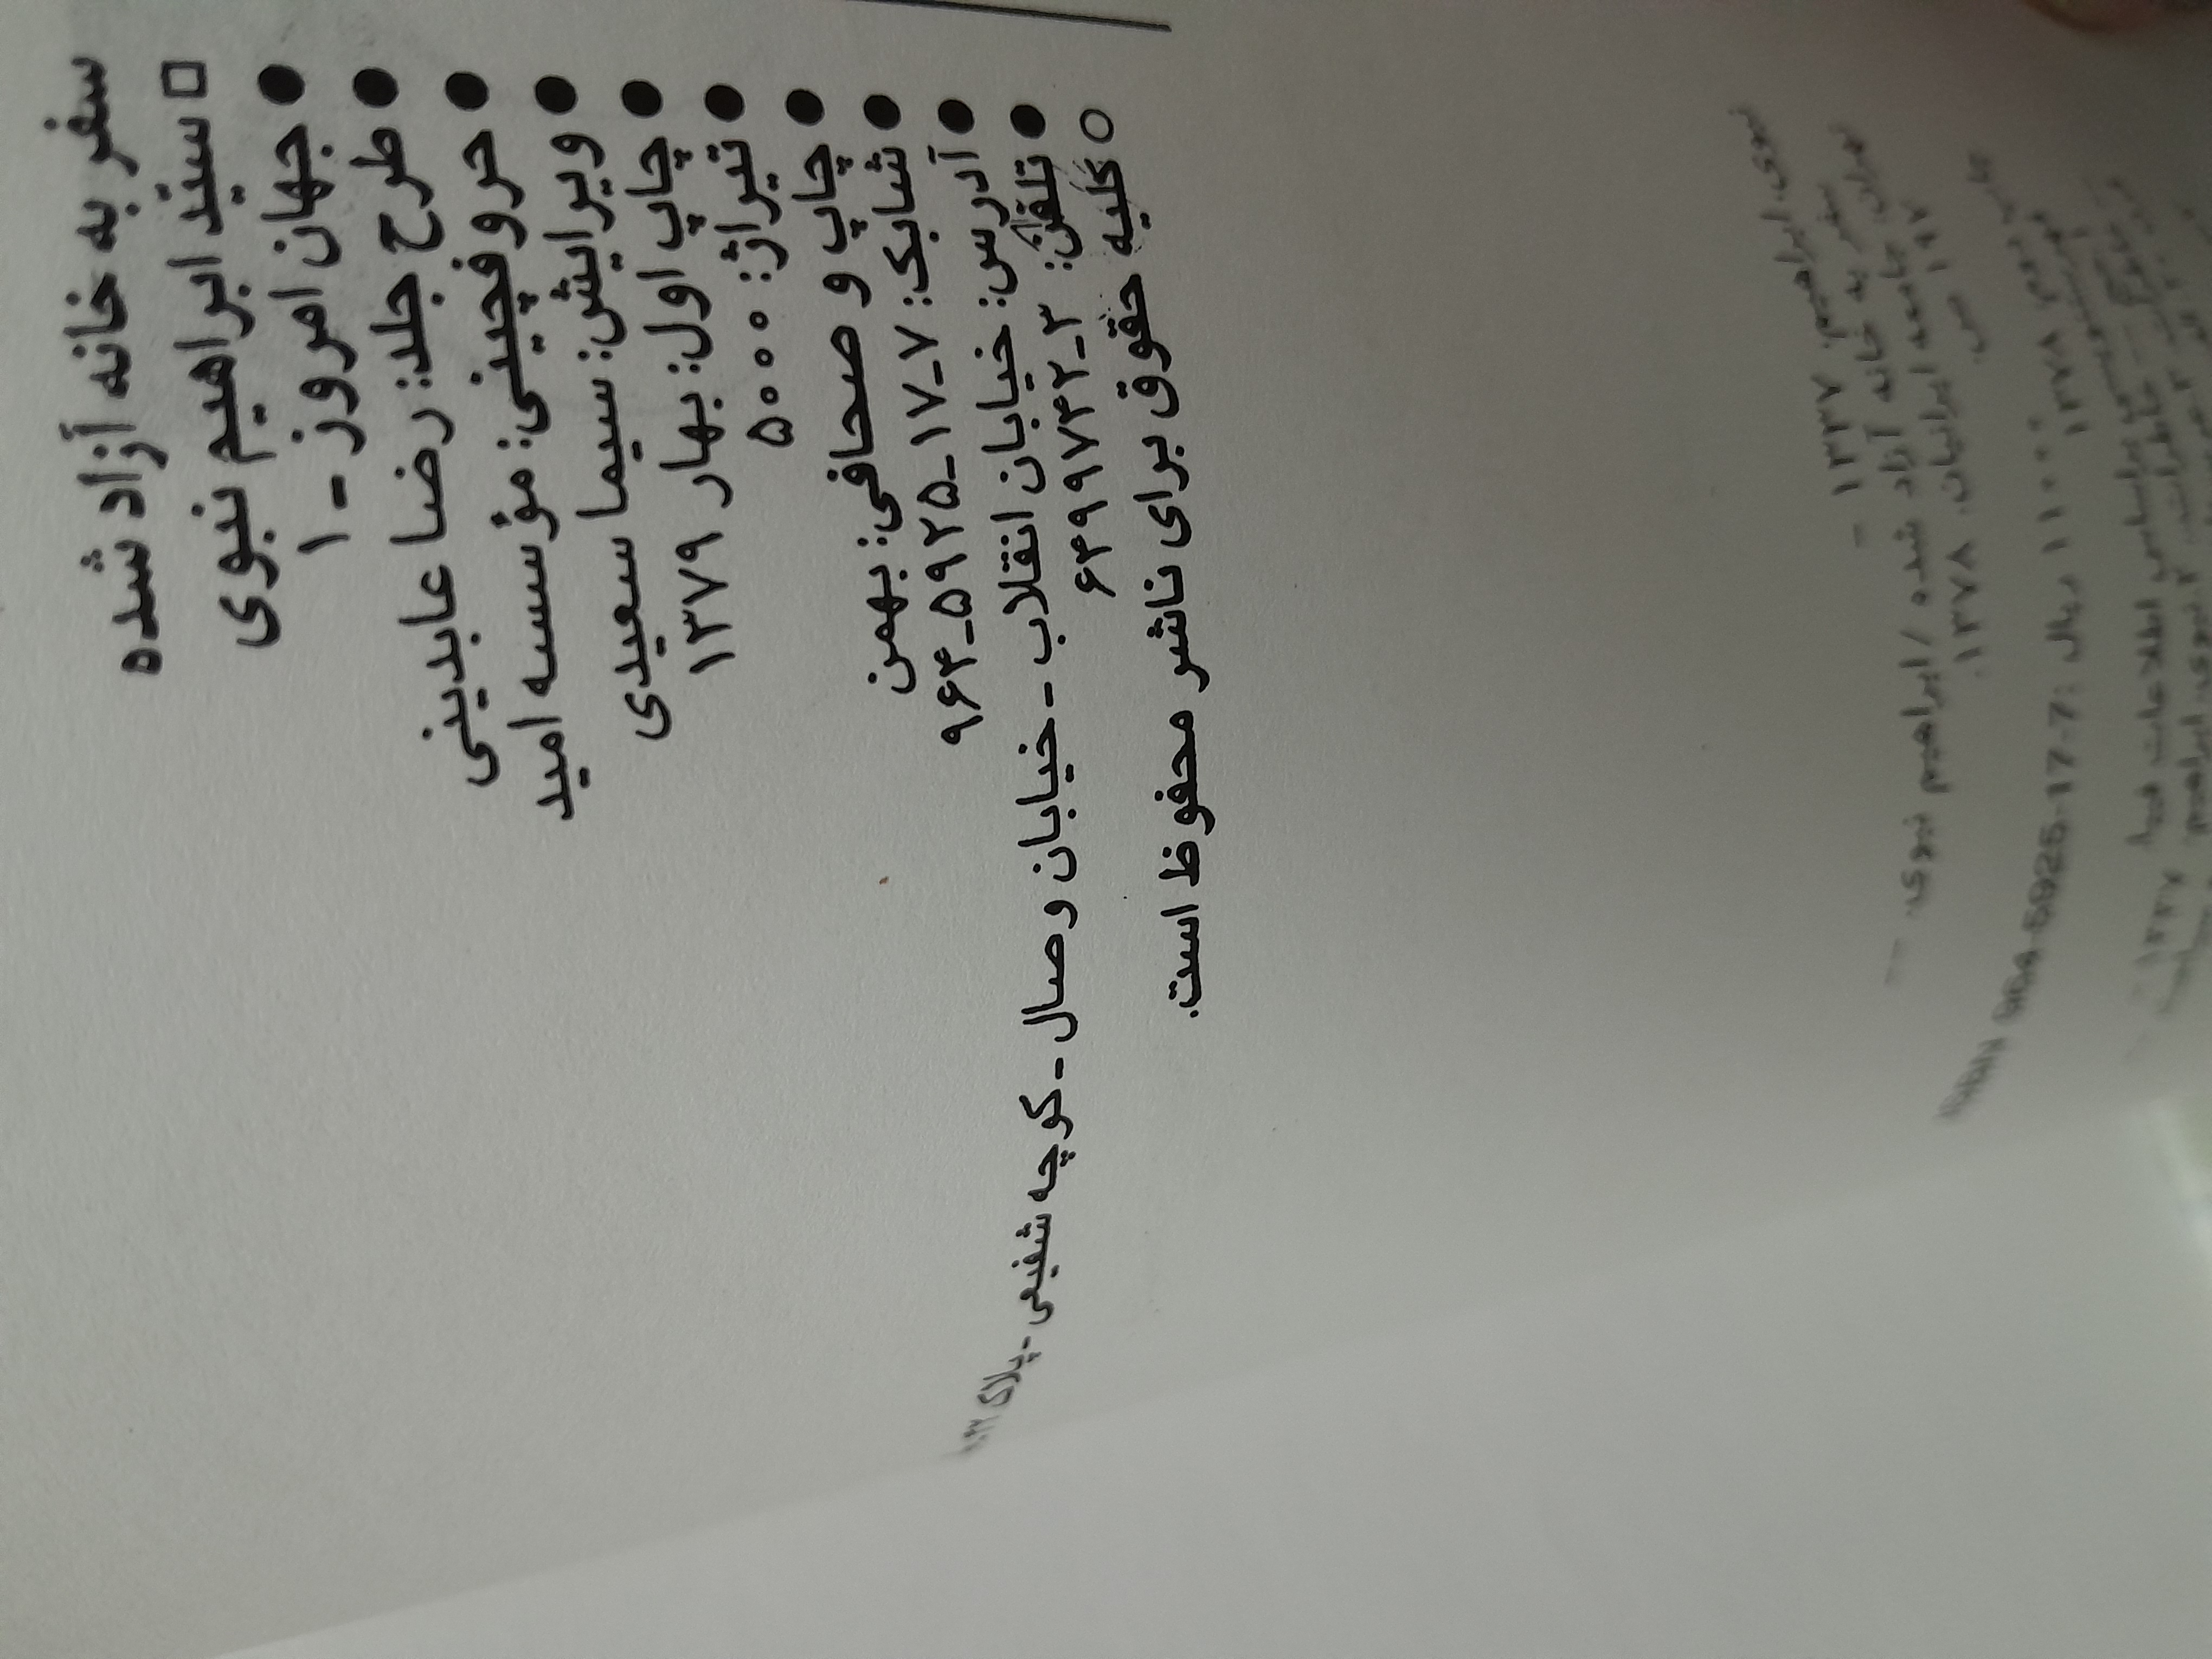 سفر به خانه آزاد شده
□ سیّد ابراهیم نبوی
● جهان امروز - ۱
● طرح جلد: رضا عابدینی
● حروفچینی: مؤسسه امید
● ویرایش: سیما سعیدی
● چاپ اول: بهار ۱۳۷۹
● تیراژ: ۵۰۰۰
● چاپ و صحافی: بهمن
● شابک: ۷-۱۷-۵۹۲۵-۹۶۴
● آدرس: خیابان انقلاب - خیابان وصال - کوچه شفیعی - پلاک
● تلفن: ۳-۶۴۹۹۷۴۲
○ کلیه حقوق برای ناشر محفوظ است.
نبوی، ابراهیم، ۱۳۳۷ -
سفر به خانه آزاد شده / ابراهیم نبوی. --
تهران: جامعه ایرانیان، ۱۳۷۸.
۱۹۲ ص.
964-5925-17-7: ۱۱۰۰۰ ریال
فهرستنویسی براساس اطلاعات فیپا